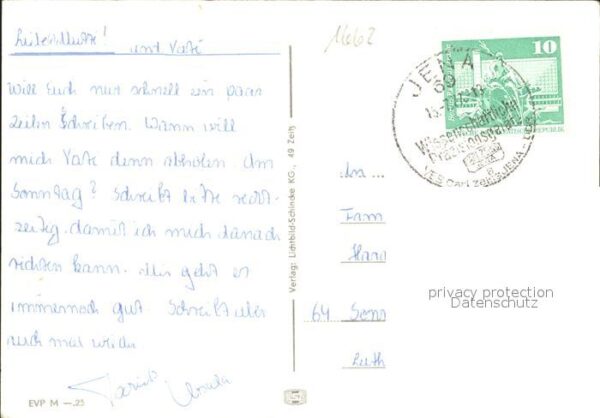 Liebe Mutti!
und Vati
Will Euch nur schnell ein paar
Zeilen schreiben. Wann will
mich Vati denn abholen. Am
Sonntag? Schreibt bitte recht-
zeitig, damit ich mich danach
richten kann. Mir geht es
immernoch gut. Schreibt aber
auch mal wieder
EVP M —.25
Verlag: Lichtbild-Schincke KG., 49 Zeitz
1662
10
JENA
69
Wissenschaftliche
Präzisionsgeräte
VEB Carl Zeiss JENA - DDR
An
Fam
Hans
64 Sonn
Luth
privacy protection
Datenschutz